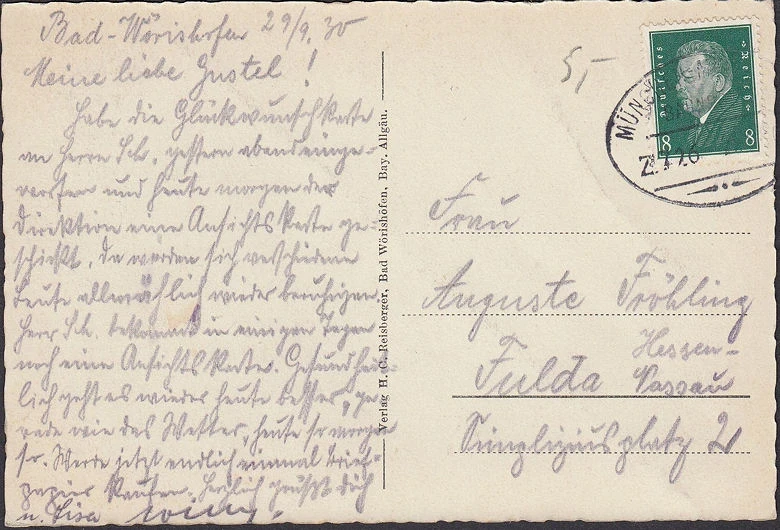 Bad-Wörishofen 29/9. 30
Meine liebe Gustel!
Habe die Glückwunschkarte
an Herrn Sch. gestern abend einge-
worfen und heute morgen der
Direktion eine Ansichtskarte ge-
schickt, da werden sich verschiedene
Leute allmählich wieder beruhigen.
Herr Sch. bekommt in einigen Tagen
noch eine Ansichtskarte. Gesundheit-
lich geht es wieder heute besser, ge-
rade wie das Wetter, heute so morgen
so. Werde jetzt endlich einmal Brief-
papier kaufen. Herzlich grüßt dich
u. Lisa
Verlag H. C. Reisberger, Bad Wörishöfen, Bay. Allgäu.
5,-
Deutsches Reich
8 8
MÜN
Z.
Frau
Auguste Fröhling
Hessen-
Fulda Nassau
Simpliziusplatz 2